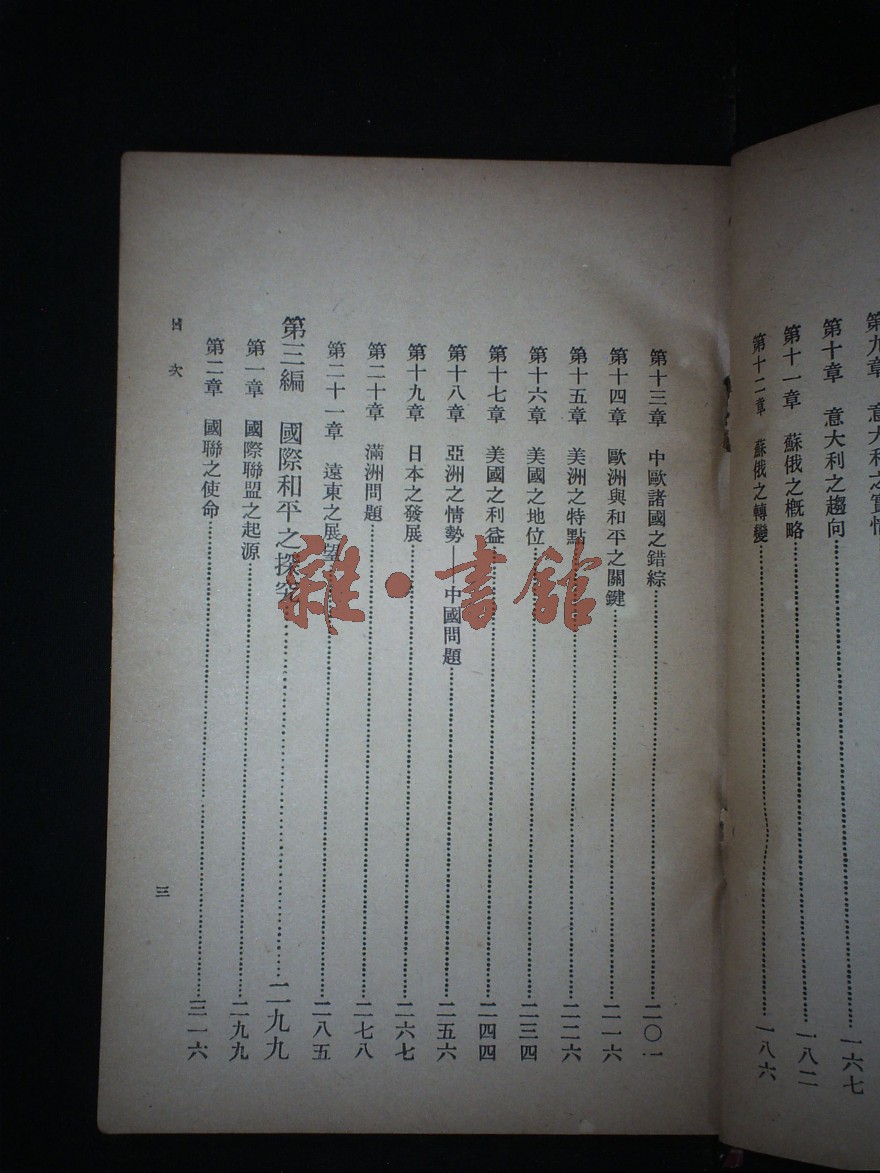 第九章 意大利之實情
第十章 意大利之趨向……一六七
第十一章 蘇俄之概略……一八二
第十二章 蘇俄之轉變……一八六
第十三章 中歐諸國之錯綜……二〇一
第十四章 歐洲與和平之關鍵……二一六
第十五章 美洲之特點……二二六
第十六章 美國之地位……二三四
第十七章 美國之利益……二四四
第十八章 亞洲之情勢—中國問題……二五六
第十九章 日本之發展……二六七
第二十章 滿洲問題……二七八
第二十一章 遠東之展望……二八五
第三編 國際和平之探究……二九九
第一章 國際聯盟之起源……二九九
第二章 國聯之使命……三一六
目次
三
雜·書館